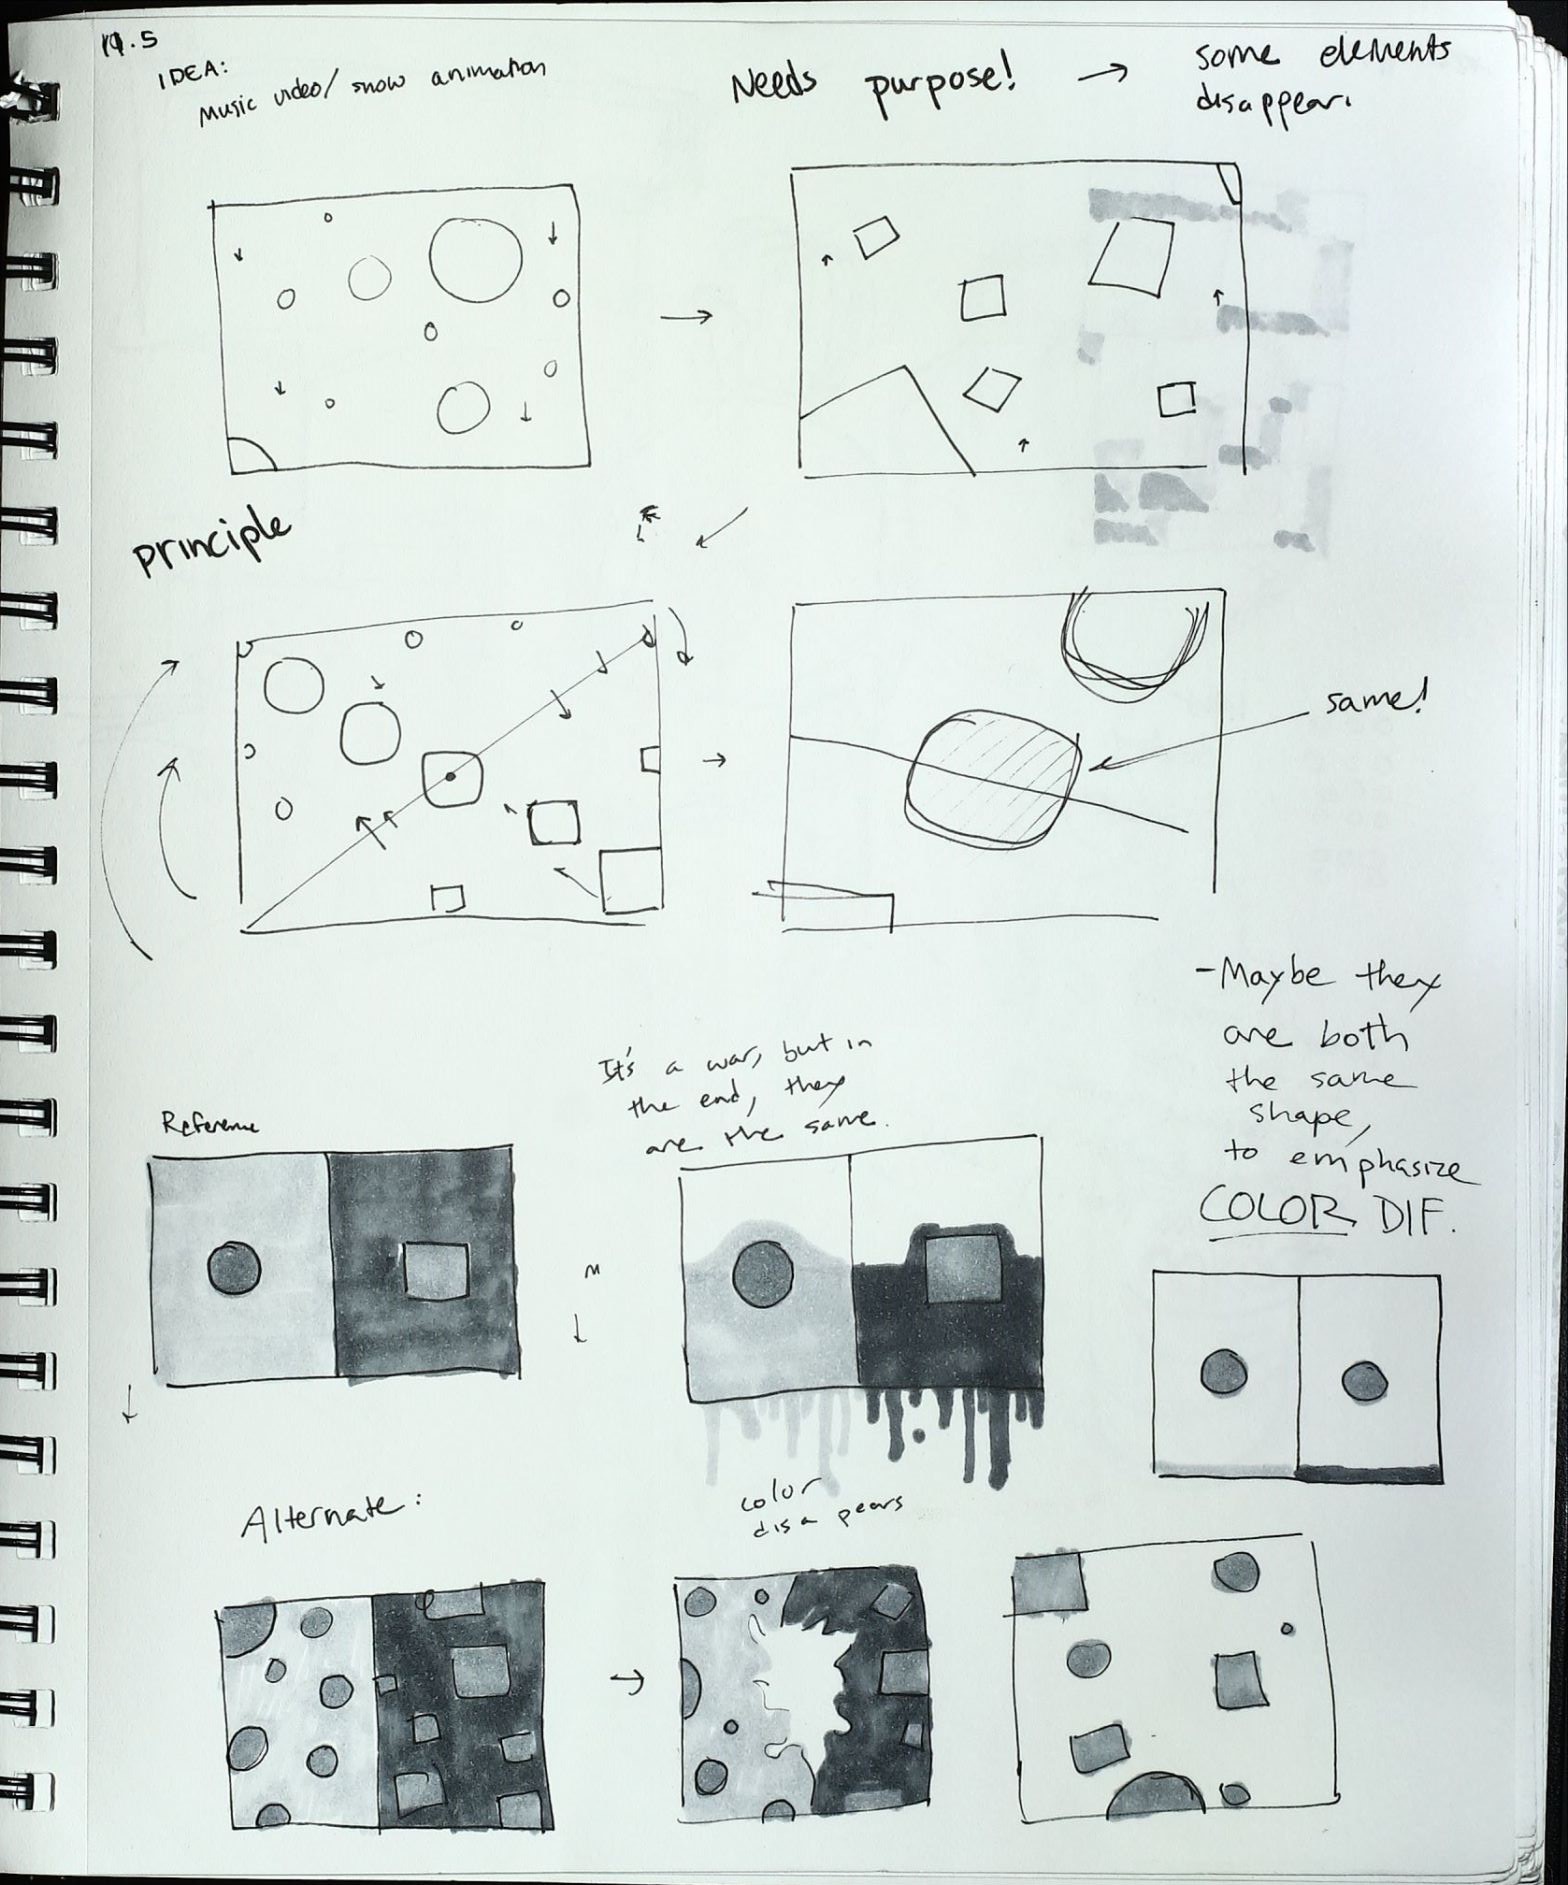 11.5
IDEA:
Music video/ snow animation
Needs purpose! → some elements
disappear.
principle
same!
-Maybe they
are both
the same
shape,
to emphasize
COLOR DIF.
It's a war, but in
the end, they
are the same.
Reference
Alternate:
color
disapears